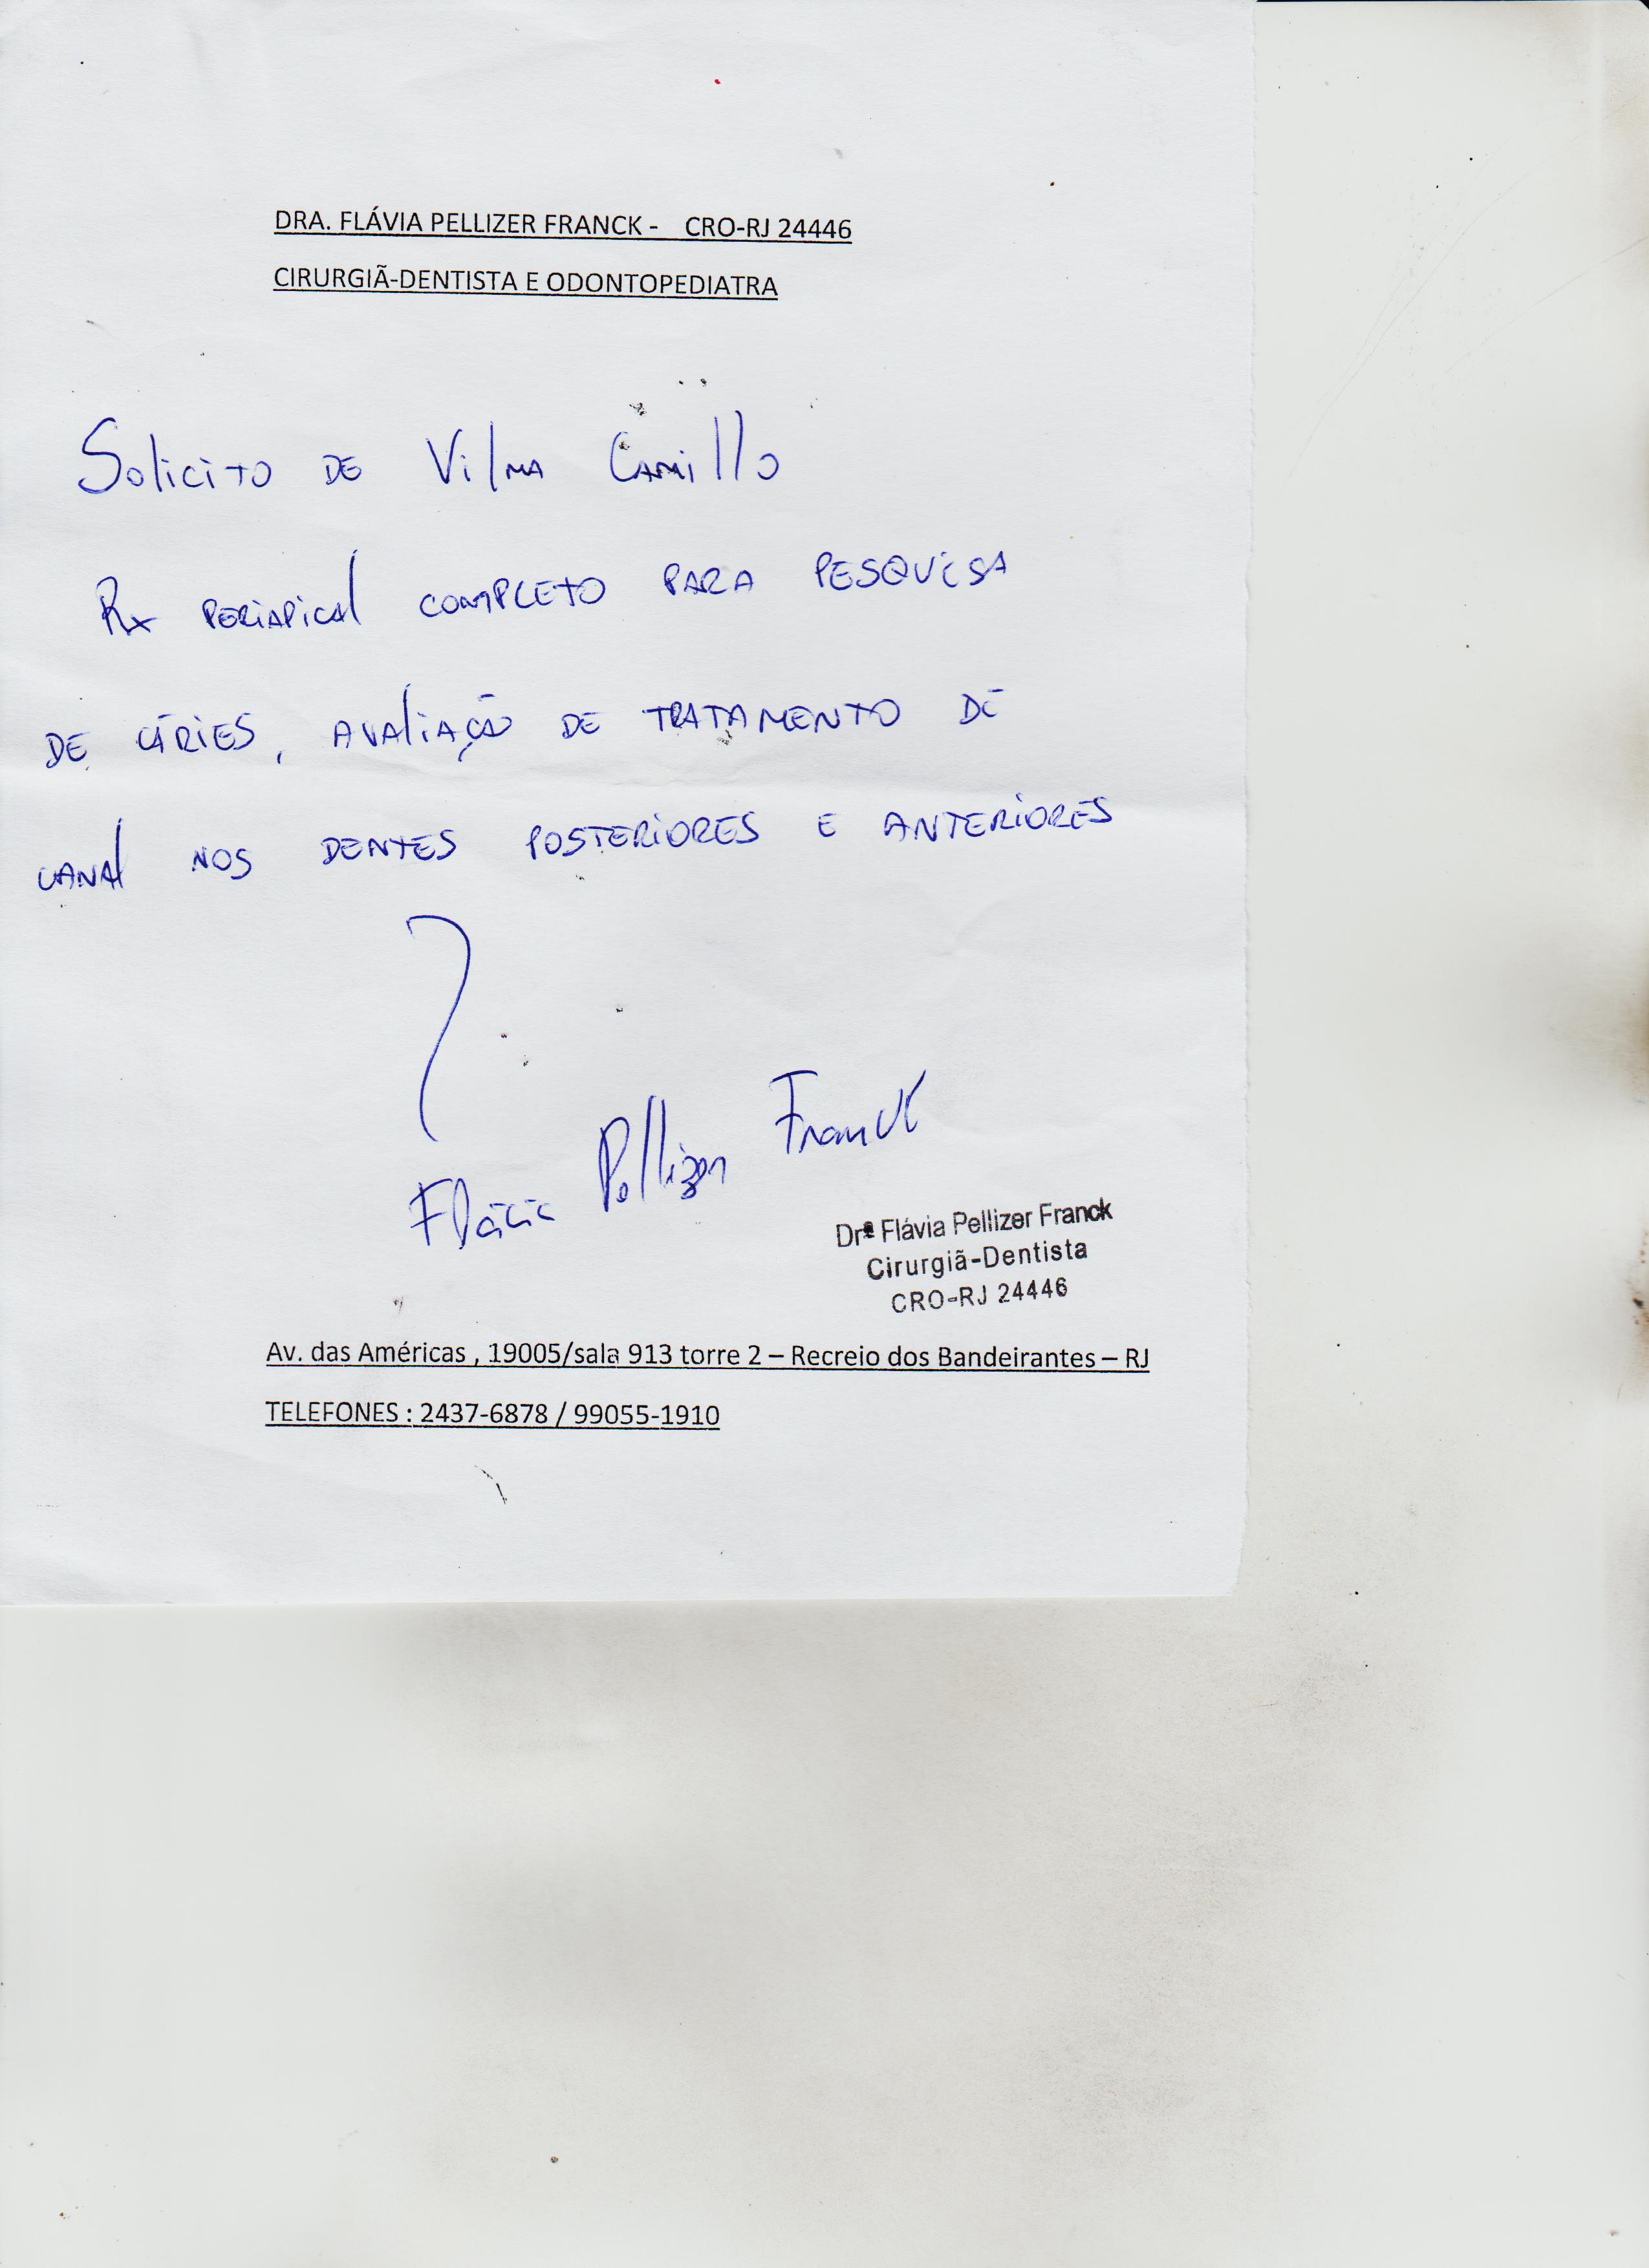 DRA. FLÁVIA PELLIZER FRANCK - CRO-RJ 24446
CIRURGIÃ-DENTISTA E ODONTOPEDIATRA
Solicito DE Vilma Camillo
Rx PERIAPICAL COMPLETO PARA PESQUISA
DE CÁRIES, AVALIAÇÃO DE TRATAMENTO DE
CANAL NOS DENTES POSTERIORES E ANTERIORES
Flávia Pellizer Franck
Drª Flávia Pellizer Franck
Cirurgiã-Dentista
CRO-RJ 24446
Av. das Américas , 19005/sala 913 torre 2 – Recreio dos Bandeirantes – RJ
TELEFONES : 2437-6878 / 99055-1910